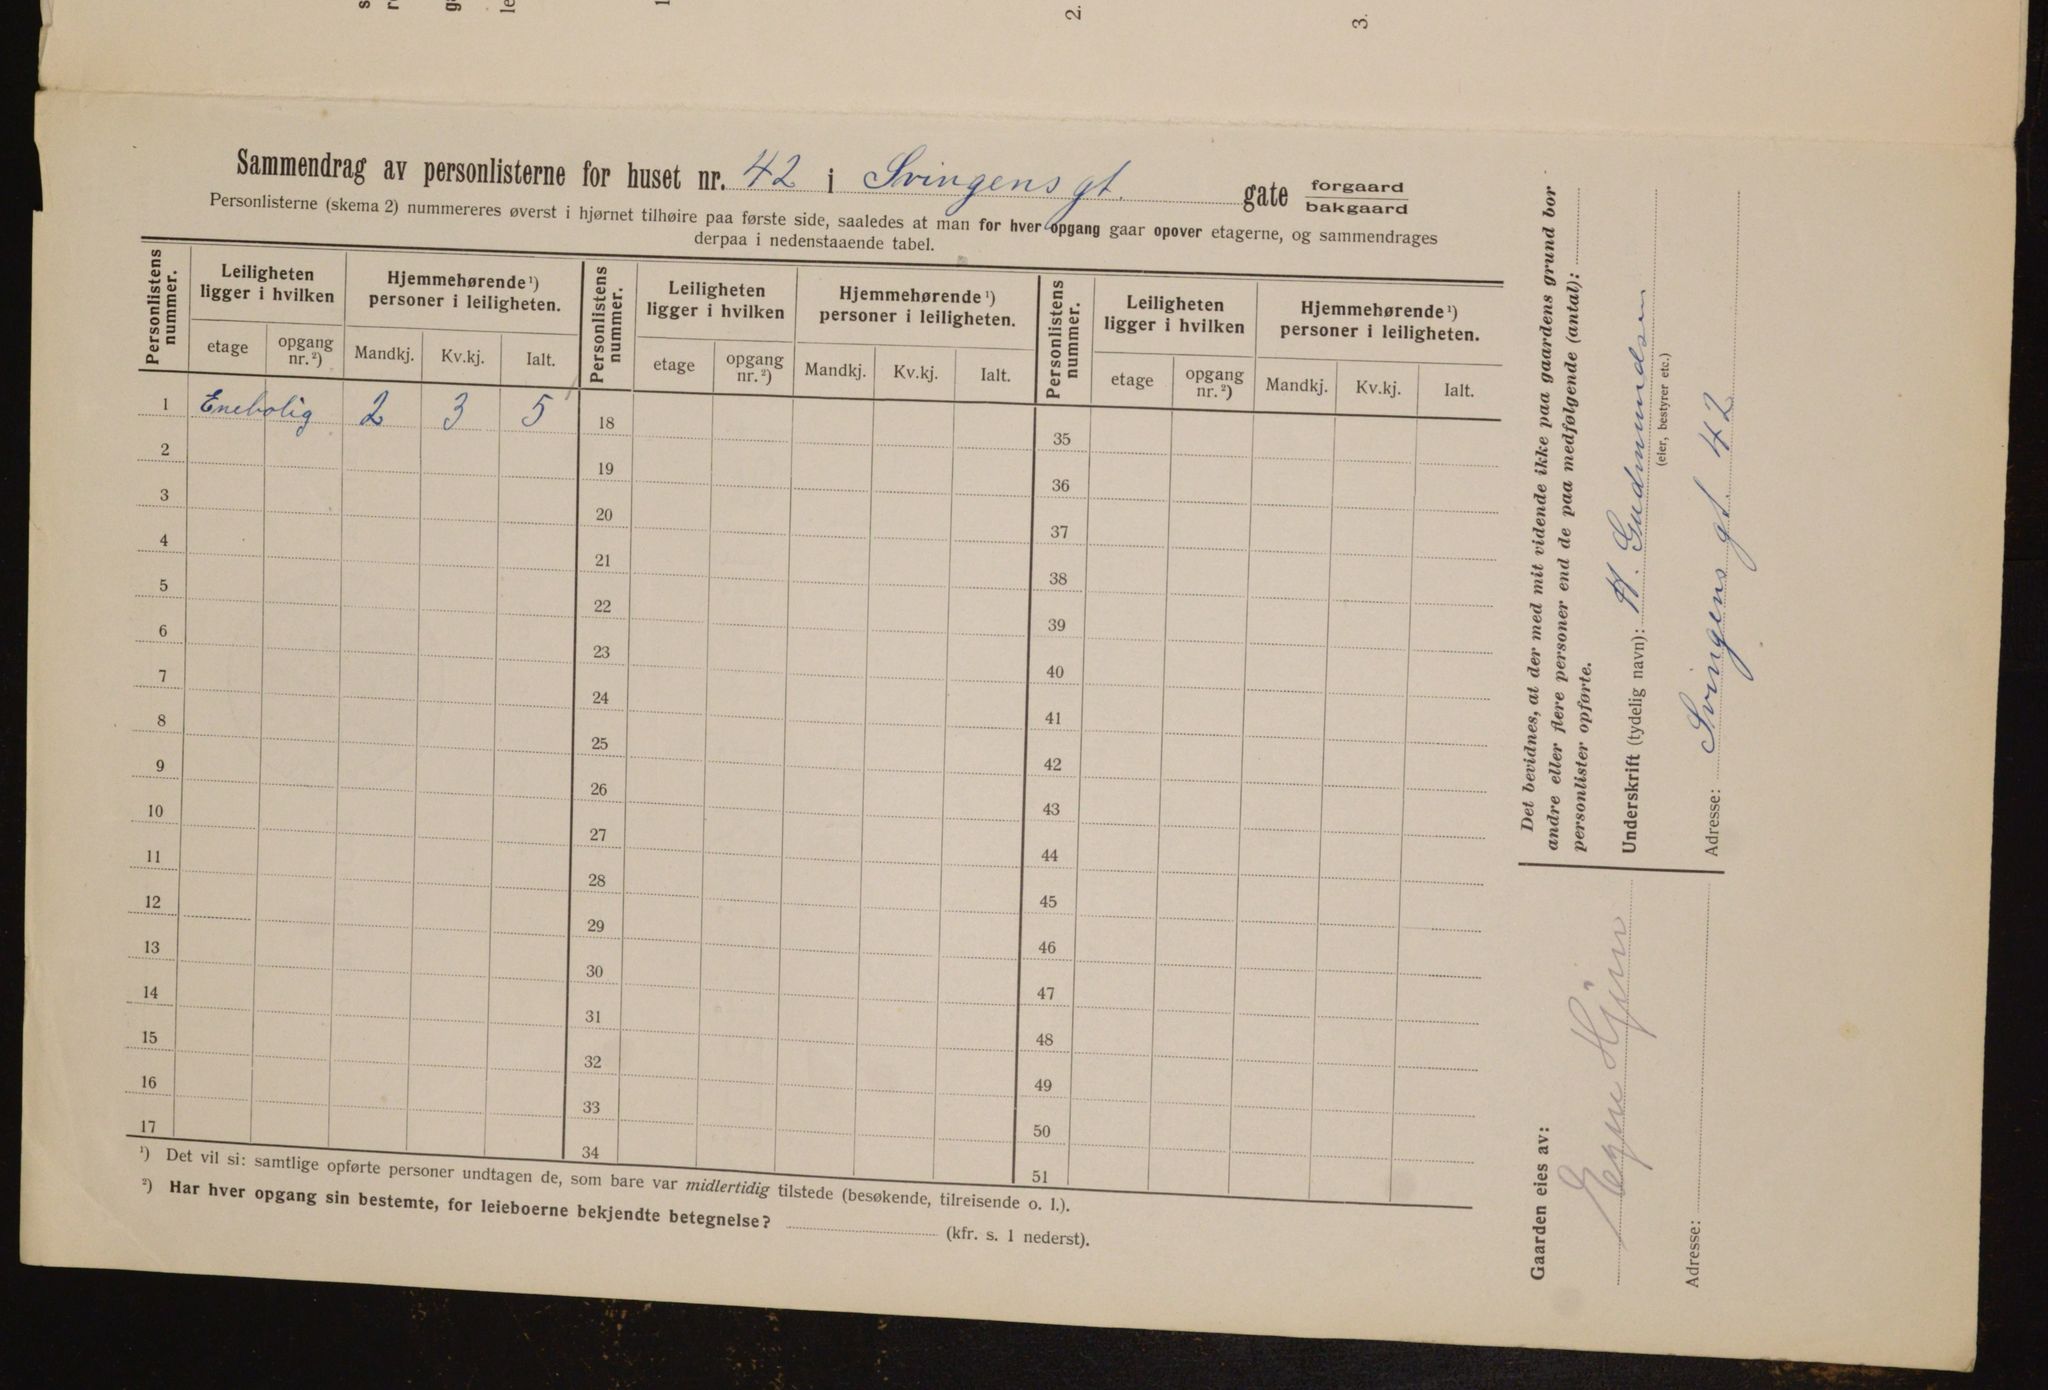 2.
3.
Sammendrag av personlisterne for huset nr. 42 i Svingens gt. gate forgaard
bakgaard
Personlisterne (skema 2) nummereres øverst i hjørnet tilhøire paa første side, saaledes at man for hver opgang gaar opover etagerne, og sammendrages
derpaa i nedenstaaende tabel.
Personlistens nummer. Leiligheten ligger i hvilken Hjemmehørende¹) personer i leiligheten. Personlistens nummer. Leiligheten ligger i hvilken Hjemmehørende¹) personer i leiligheten. Personlistens nummer. Leiligheten ligger i hvilken Hjemmehørende¹) personer i leiligheten.
etage opgang nr.²) Mandkj. Kv.kj. Ialt. etage opgang nr.²) Mandkj. Kv.kj. Ialt. etage opgang nr.²) Mandkj. Kv.kj. Ialt.
1 Enebolig 2 3 5 18 35
2 19 36
3 20 37
4 21 38
5 22 39
6 23 40
7 24 41
8 25 42
9 26 43
10 27 44
11 28 45
12 29 46
13 30 47
14 31 48
15 32 49
16 33 50
17 34 51
¹) Det vil si: samtlige opførte personer undtagen de, som bare var midlertidig tilstede (besøkende, tilreisende o. l.).
²) Har hver opgang sin bestemte, for leieboerne bekjendte betegnelse? (kfr. s. 1 nederst).
Det bevidnes, at der med mit vidende ikke paa gaardens grund bor
andre eller flere personer end de paa medfølgende (antal):
personlister opførte.
Underskrift (tydelig navn): H. Gudmundsen
(eier, bestyrer etc.)
Adresse: Svingens gt. 42
Gaarden eies av:
Adresse: